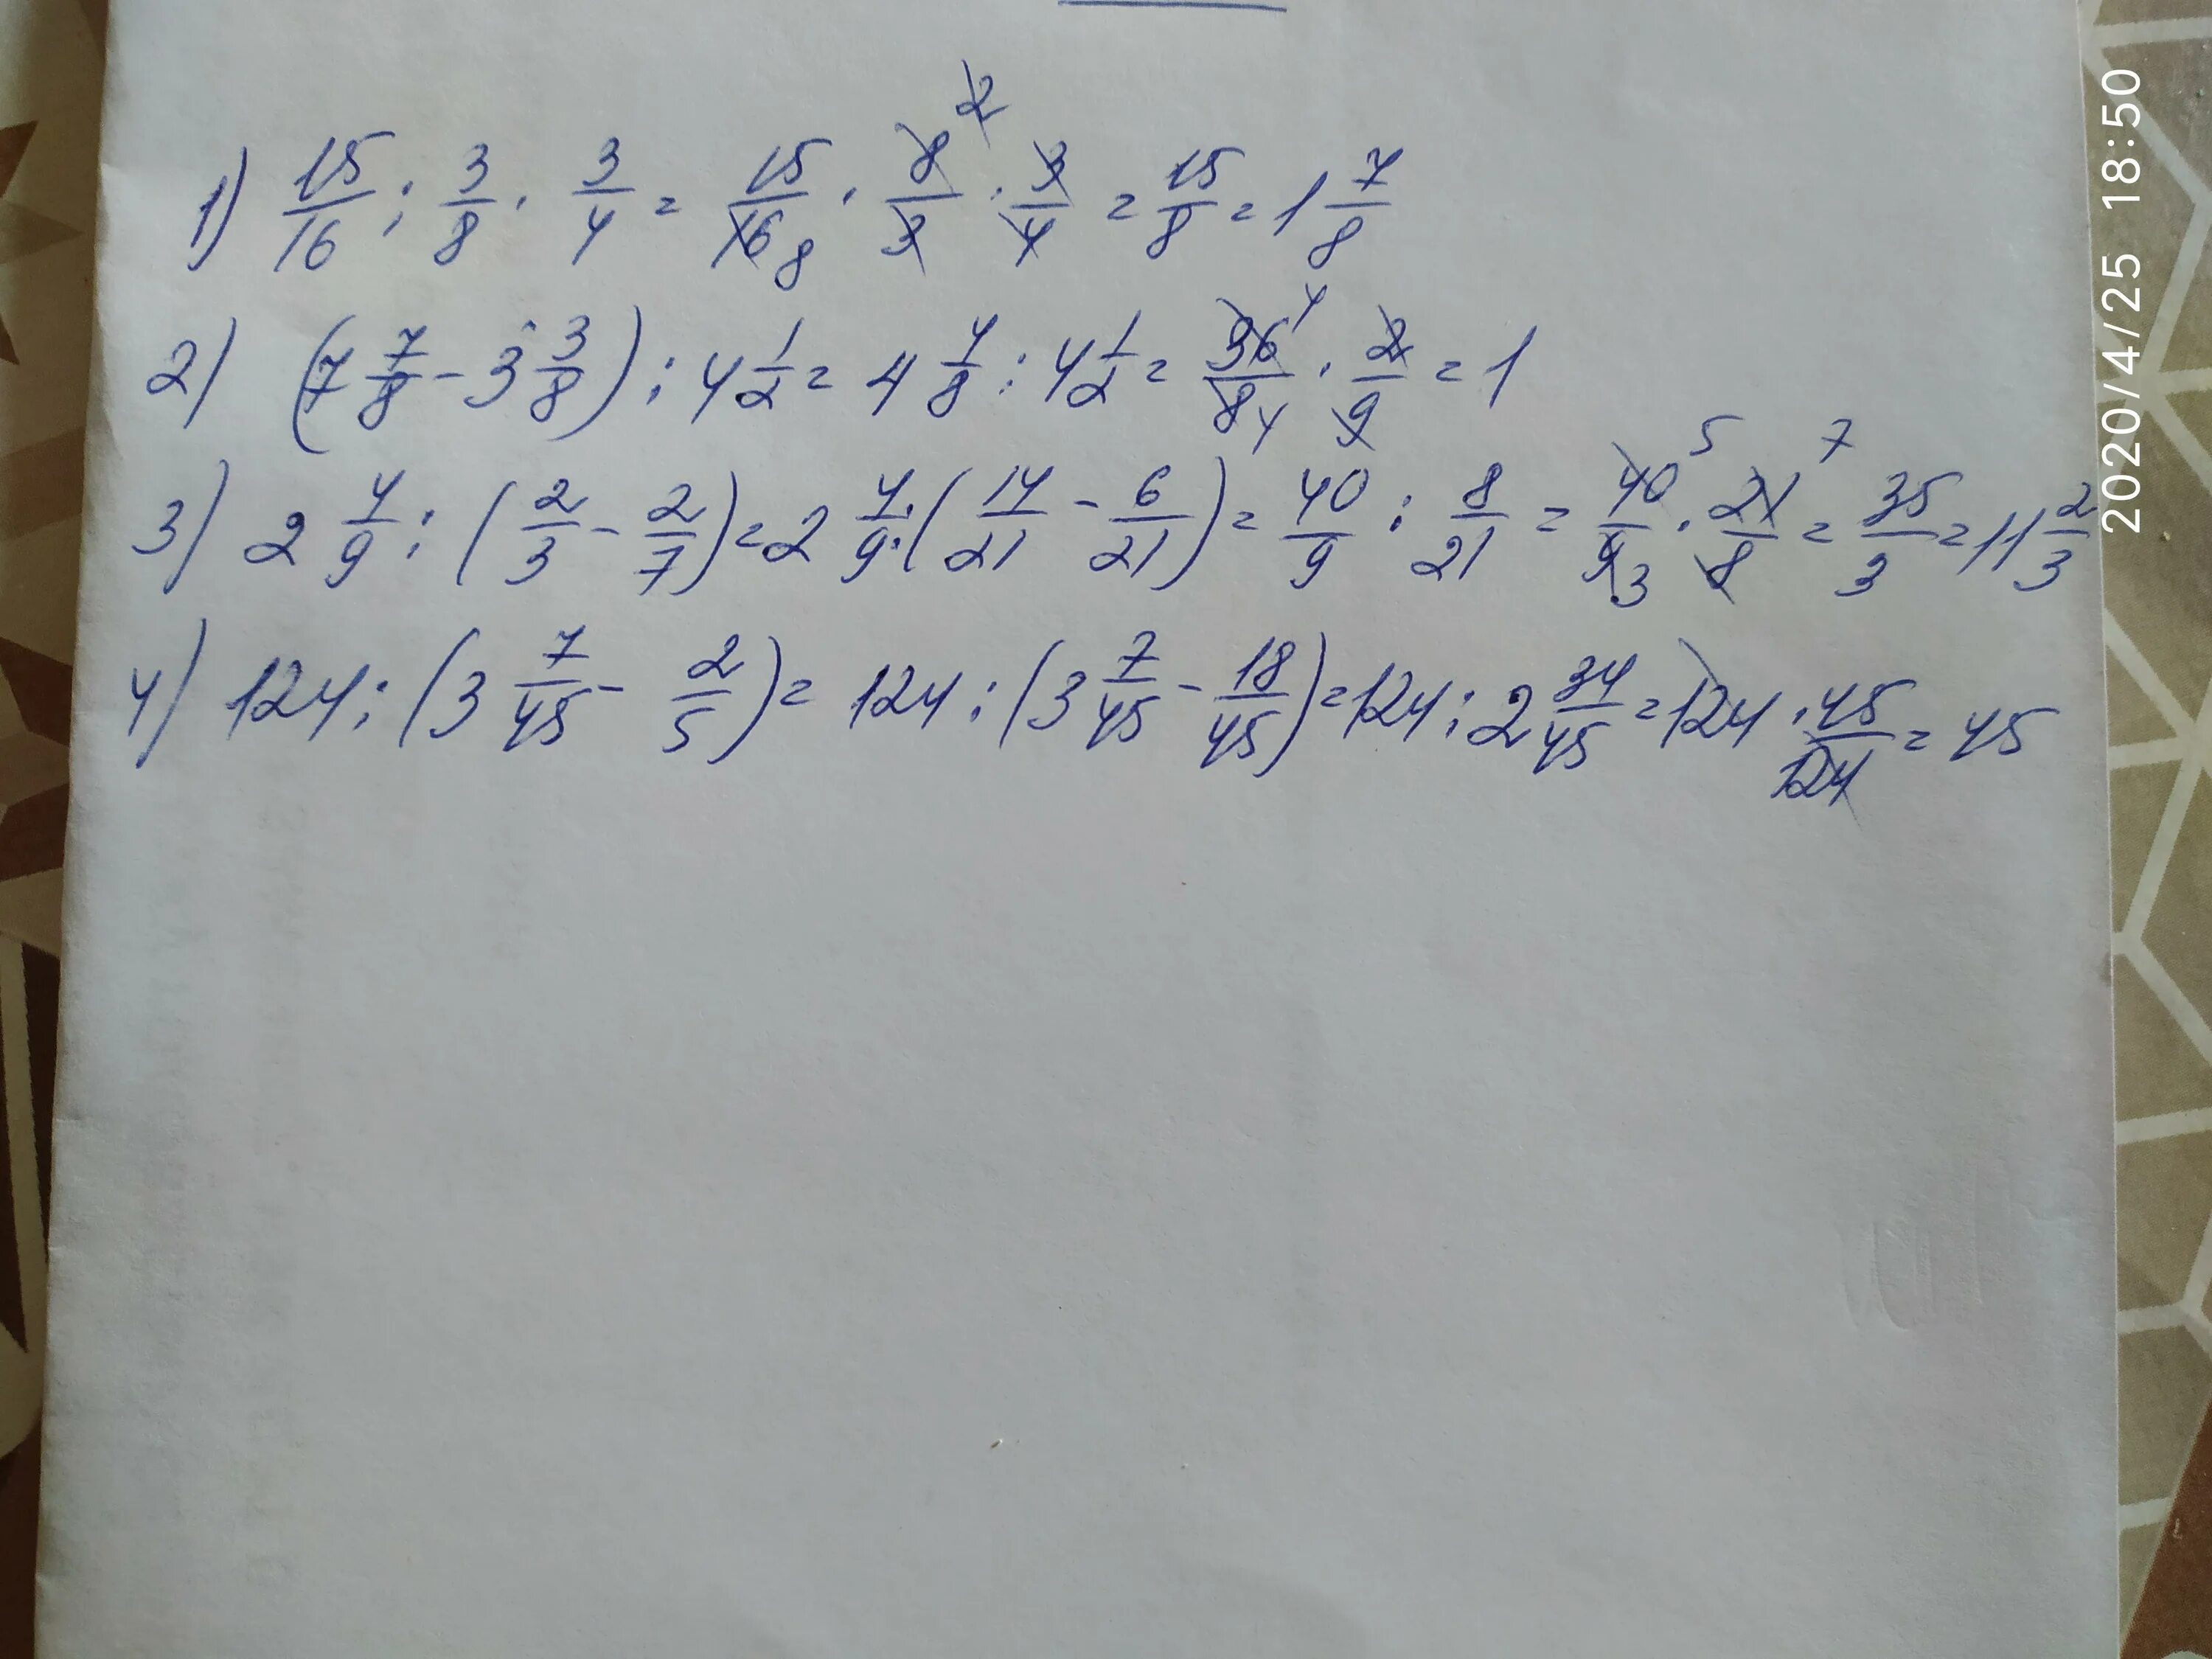 1) 15/16 : 3/8 · 3/4 = 15/16 8 · 8/3 2 · 3/4 = 15/8 = 1 7/8
2) (7 7/8 - 3 3/8) : 4 1/2 = 4 4/8 : 4 1/2 = 36/8 4 4 · 2/9 = 1
3) 2 4/9 : (2/3 - 2/7) = 2 4/9 : (14/21 - 6/21) = 40/9 : 8/21 = 40/9 5 3 · 21/8 7 = 35/3 = 11 2/3
4) 124 : (3 7/45 - 2/5) = 124 : (3 7/45 - 18/45) = 124 : 2 34/45 = 124 · 45/124 = 45
2020/4/25 18:50